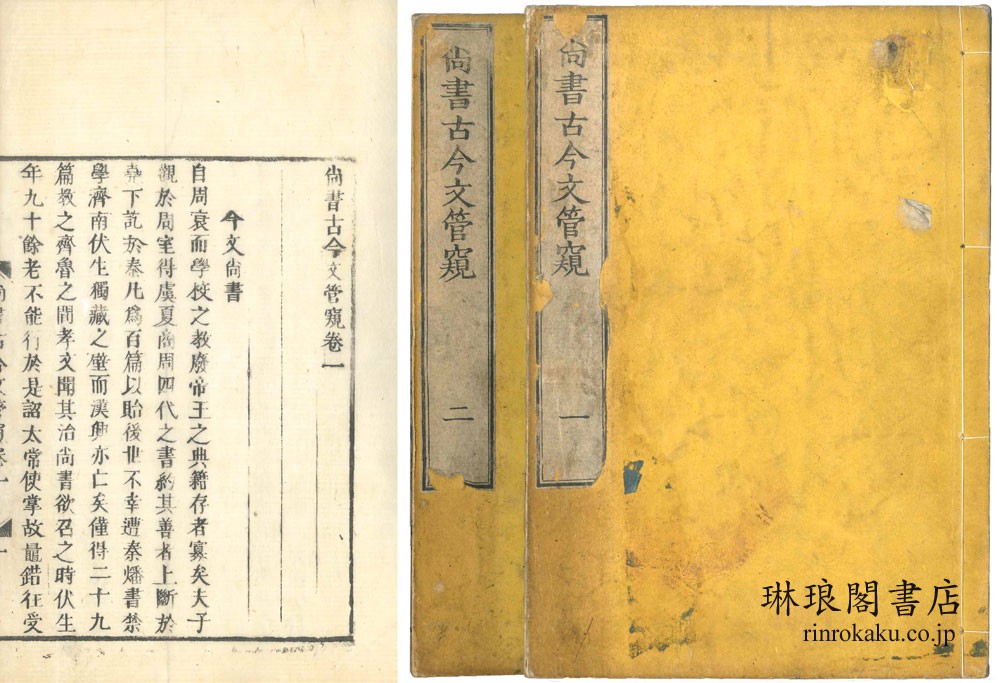 尚書古今文管窺卷一
今文尚書
自周衰而學校之教廢帝王之典籍存者寡矣夫子
觀於周室得虞夏商周四代之書約其善者上斷於
堯下訖於秦凡爲百篇以貽後世不幸遭秦燔書禁
學濟南伏生獨藏之壁而漢興亦亡矣僅得二十九
篇教之齊魯之間孝文聞其治尚書欲召之時伏生
年九十餘老不能行於是詔太常使掌故鼂錯往受
尚書古今文管窺卷一
一
尚書古今文管窺
二
尚書古今文管窺
一
琳琅閣書店
rinrokaku.co.jp